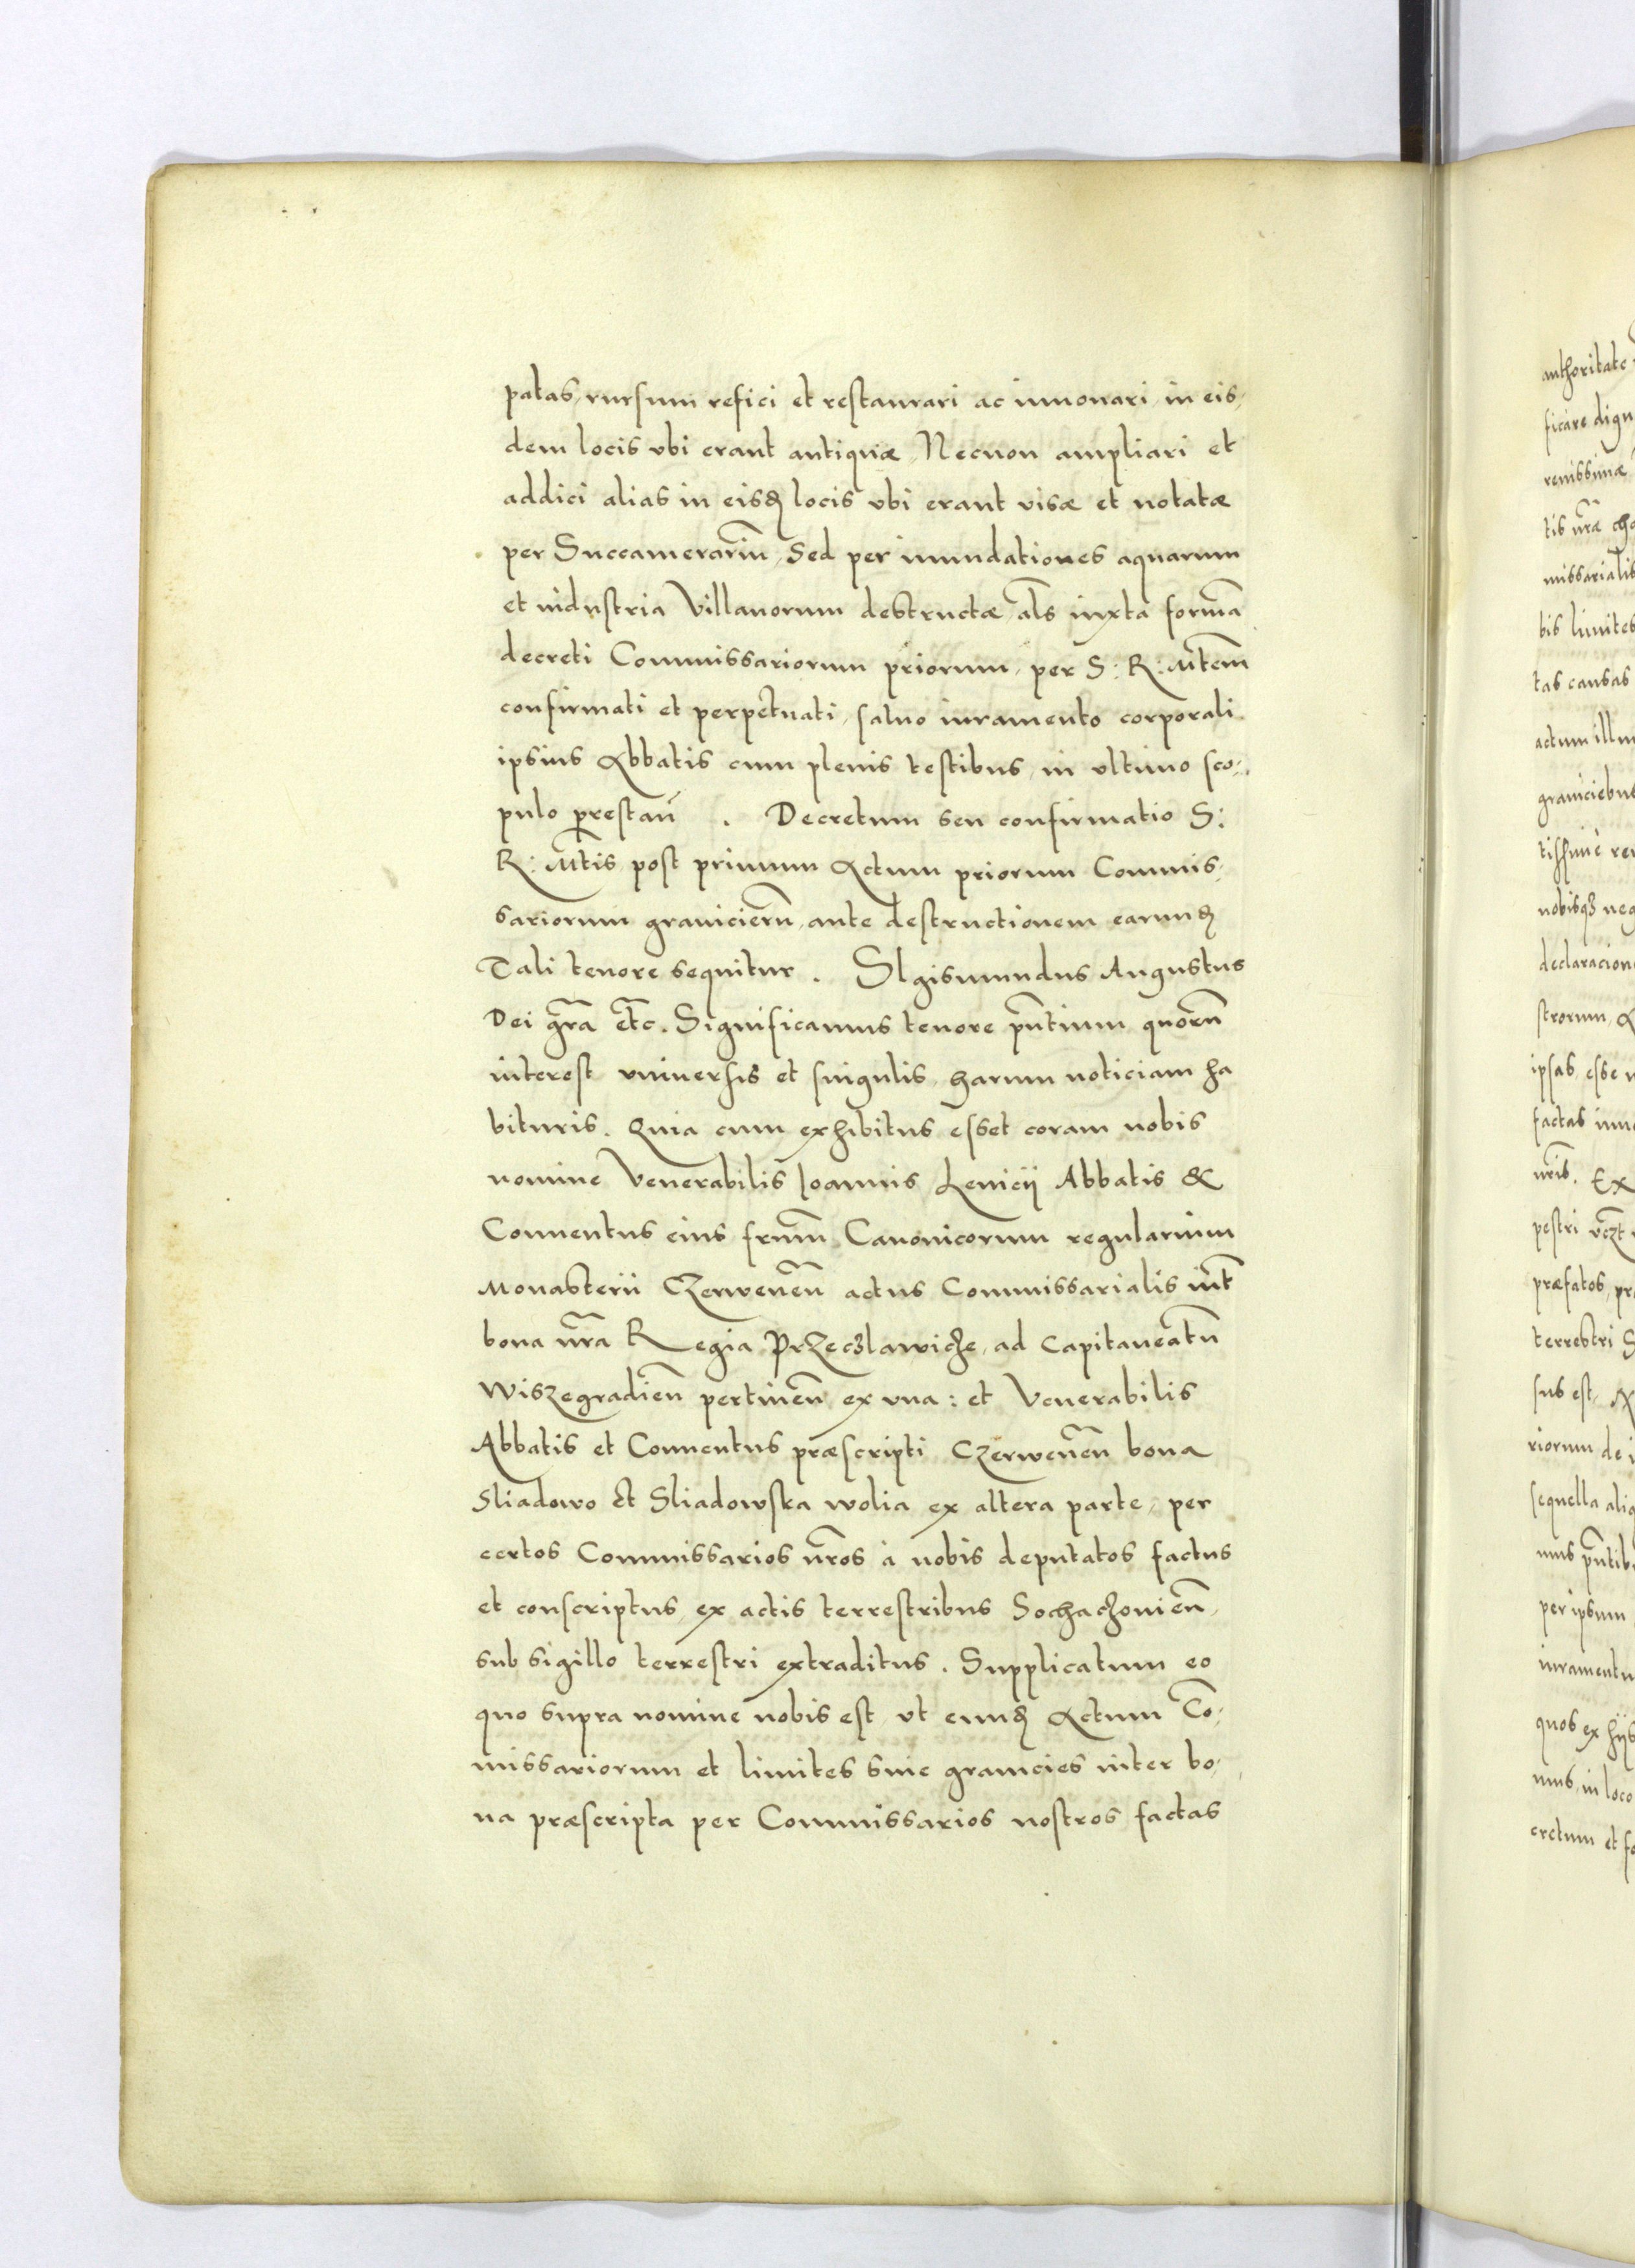 patas, rursum refici et restaurari ac innouari, in eis,
dem locis vbi erant antiquæ, Necnon ampliari et
addici alias in eisđ locis vbi erant visæ et notatæ
per Succamerariū, Sed per inundationes aquarum
et industria Villanorum destructæ, als̃ iuxta formã
decreti Commissariorum priorum, per S: R: Mtem̃
confirmati et perpetuati, saluo iuramento corporali
ipsius Abbatis cum plenis testibus, in vltimo sco,
pulo p̱restan̄ . Decretum seu confirmatio S:
R: Mt̃is post primum Actum priorum Commis,
sariorum granicierũ, ante destructionem earunđ
Tali tenore sequitur. SIgismundus Augustus
Dei grã et̃c. Significamus tenore pñtium quorũ
interest vniuersis et singulis, harum noticiam ha
bituris. Quia cum exhibitus esset coram nobis
nomine Venerabilis Ioannis Lenicij Abbatis &
Conuentus eius frum̃ Canonicorum regularium
Monasterii Czerwenẽn actus Commissarialis int̃
bona nr̃a Regia Przeczlawicze, ad Capitaneatũ
Wiszegradieñ pertineñ ex vna: et Venerabilis
Abbatis et Conuentus præscripti Czerwenẽn bona
Sliadowo et Sliadowska wolia ex altera parte, per
certos Commissarios nr̃os à nobis deputatos factus
et conscriptus, ex actis terrestribus Sochaczouieñ,
sub sigillo terrestri extraditus. Supplicatum eo
quo supra nomine nobis est, vt eunđ Actum Cõ,
missariorum et limites siue granicies inter bo,
na præscripta per Commissarios nostros factas
authoritate
ficare dign
renissimæ
tis nr̃æ cha
missarialis
bis limites
tas causas
actum illu
graniciebus
tissimè re
nobisq₃ neg
declaracion
strorum, A
ipsas, esse
factas
nr̃is. Ex
pestri
præfatos, pr
terrestri S
sus est,
riorum de i
sequella aliq
mus pñtib
per ipsum
iuramentu
quos ex hijs
mus, in loco
cretum et fa